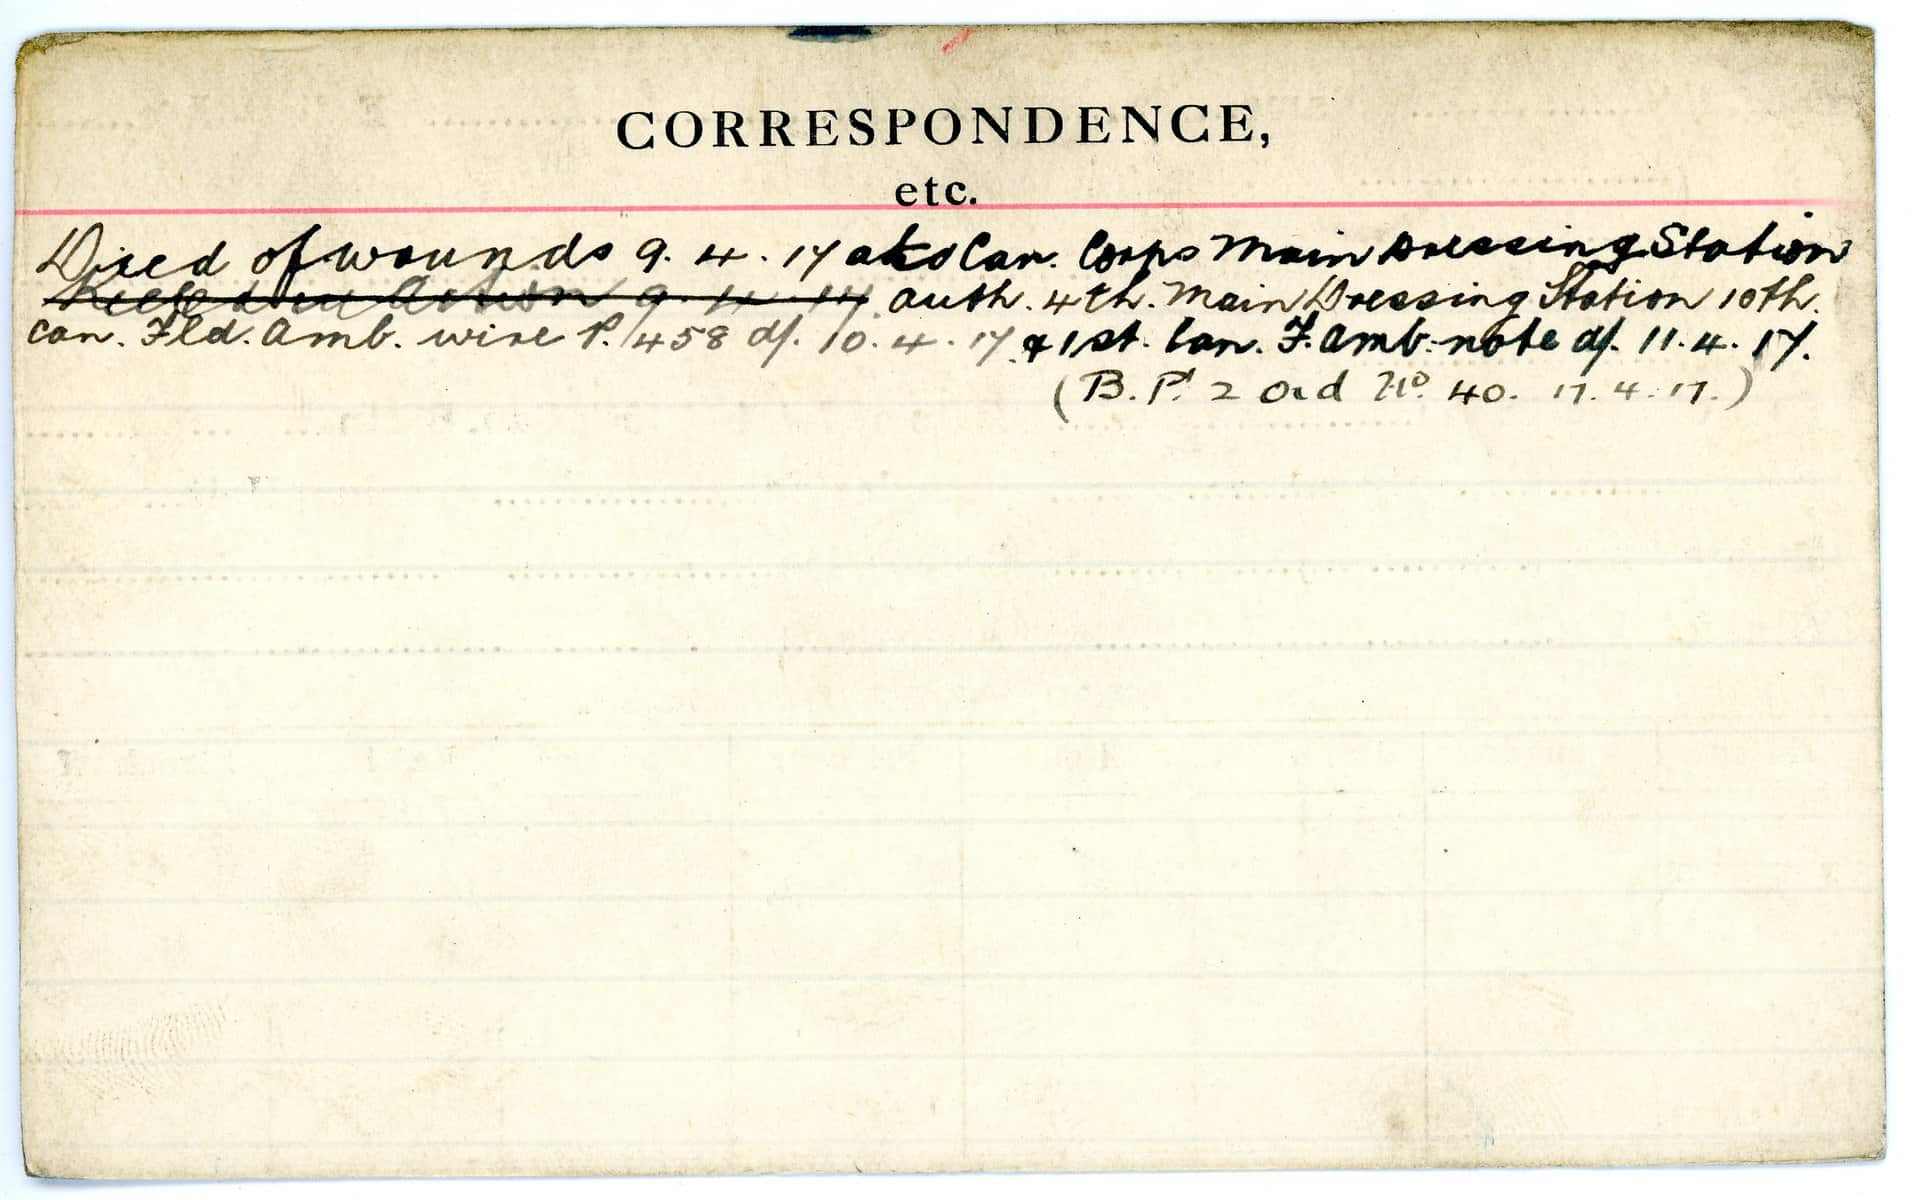 CORRESPONDENCE,
etc.
Died of wounds 9. 4. 17 at Can. Corps Main Dressing Station
Killed in Action 9. 4. 17. auth. 4th. Main Dressing Station 10th.
Can. Fld. Amb. wire P./458 d/. 10. 4. 17. & 1st. Can. F. Amb. note d/. 11. 4. 17.
(B. P. 2 Ord No. 40. 17. 4. 17.)